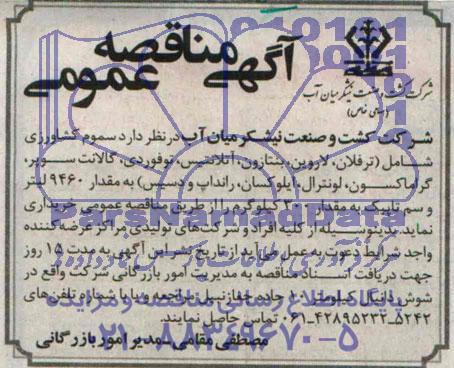 آگهی مناقصه
عمومی
شرکت کشت و صنعت نیشکر میان آب
(سهامی خاص)
شرکت کشت و صنعت نیشکر میان آب در نظر دارد سموم کشاورزی
شامل (ترفلان، لاروین، بتازون، آتلانتیس، توفوردی، گالانت سوپر،
گراماکسون، لونترال، ایلوکسان، رانداپ و دسیس) به مقدار ۹۴۶۰ لیتر
و سم تاپیک به مقدار کیلوگرم را از طریق مناقصه عمومی خریداری
نماید. بدینوسیله از کلیه افراد و شرکت‌های تولیدی و مراکز عرضه‌کننده
واجد شرایط دعوت به عمل می‌آید از تاریخ نشر این آگهی به مدت ۱۵ روز
جهت دریافت اسناد مناقصه به مدیریت امور بازرگانی شرکت واقع در
شوش دانیال، کیلومتر ۱۰ جاده مراجعه و یا با شماره تلفن‌های
۵۲۴۲-۴۲۸۹۵۲۳۲-۰۶۱ تماس حاصل نمایند.
مصطفی مقامی - مدیر امور بازرگانی
ParsNamadData
۰۲۱-۸۸۳۴۹۶۷۰-۵